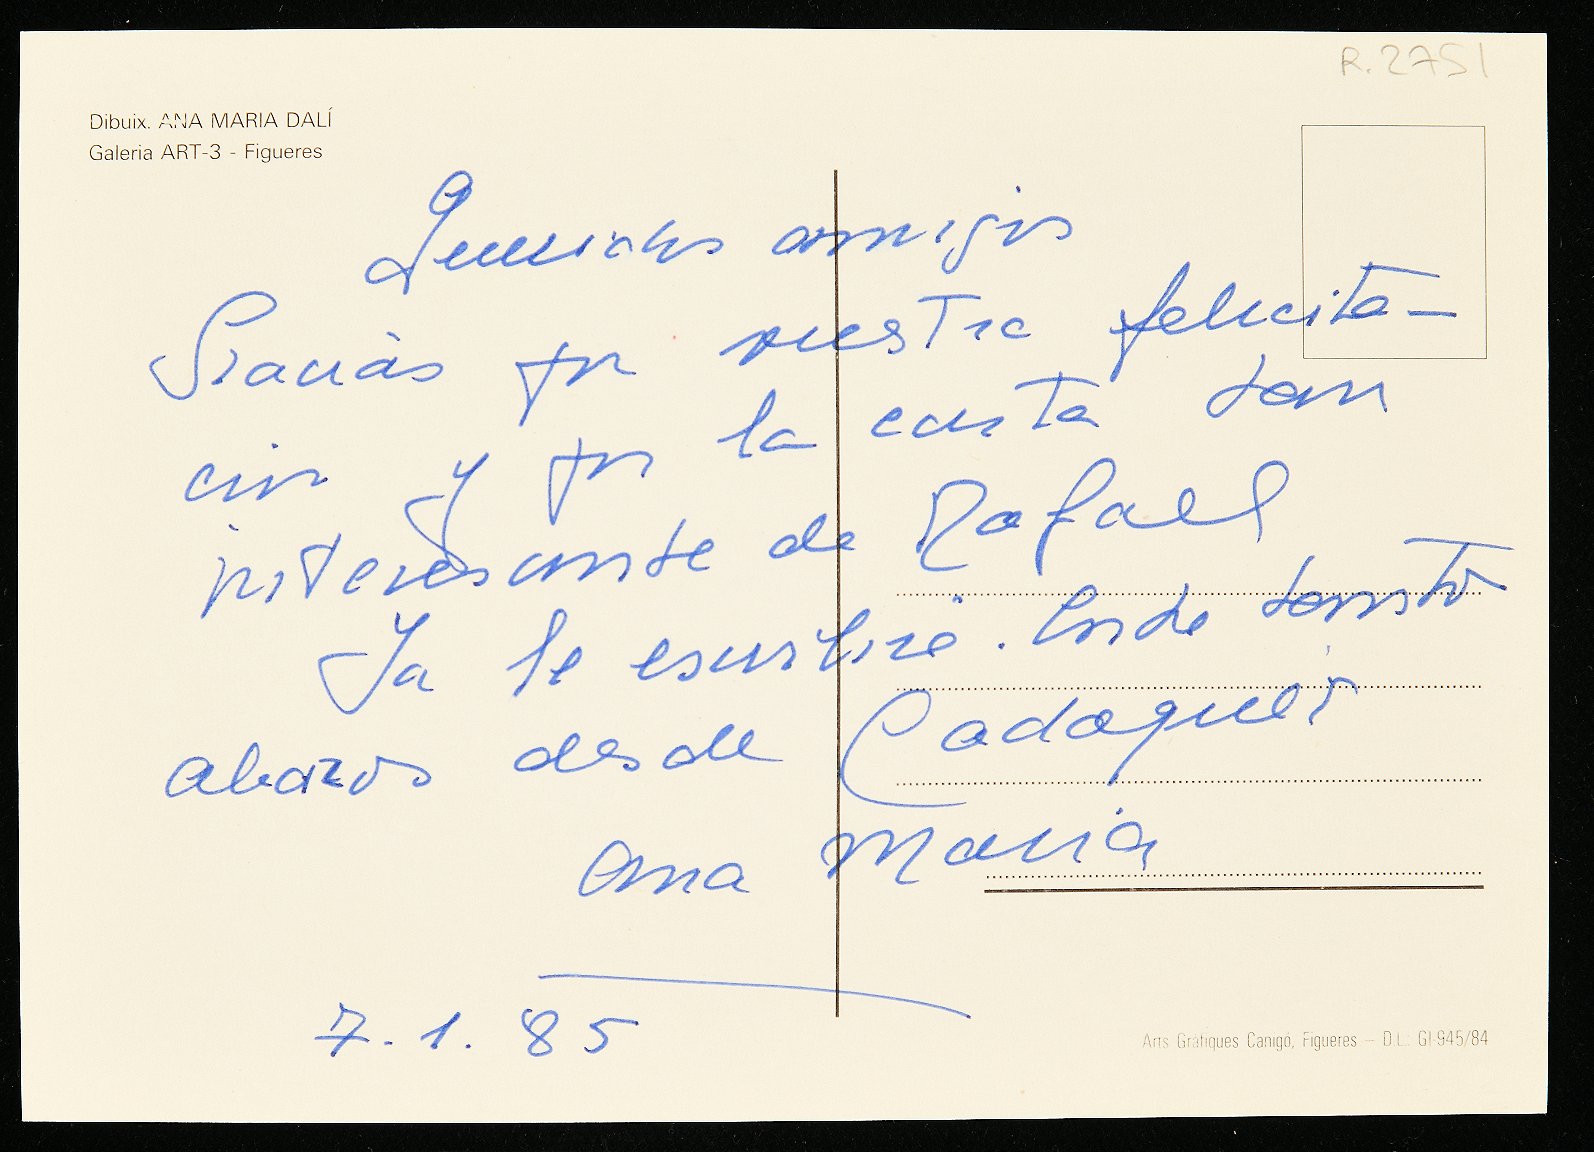 R. 2751
Dibuix. ANA MARIA DALÍ
Galeria ART-3 - Figueres
Queridos amigos
Gracias por vuestra felicita-
cion y por la carta tan
interesante de Rafael
Ya le escribiré. Entre tanto
abrazos desde Cadaqués
Ana Maria
7.1.85
Arts Gràfiques Canigó, Figueres - D.L.: GI-945/84